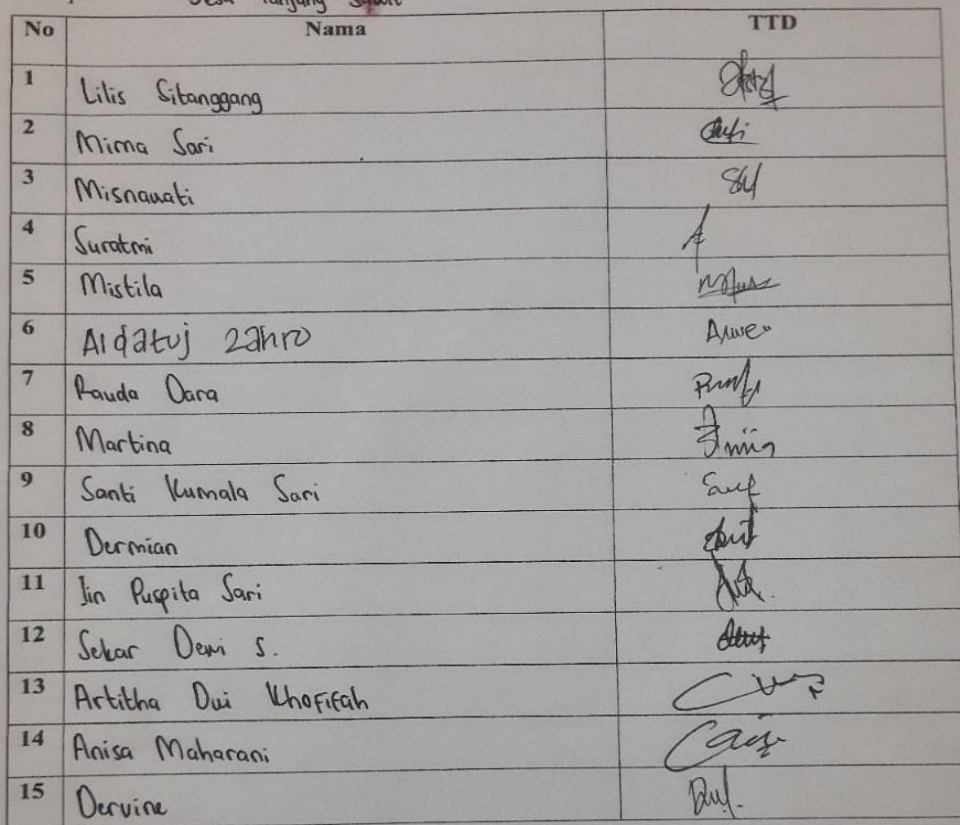 Desa Tanjung
No Nama TTD
1 Lilis Sitanggang
2 Mirna Sari
3 Misnawati
4 Suratmi
5 Mistila
6 Aidatuj zahro
7 Rauda Dara
8 Martina
9 Santi Kumala Sari
10 Dermian
11 Iin Puspita Sari
12 Sekar Dewi S.
13 Artitha Dwi Khofifah
14 Anisa Maharani
15 Dervine